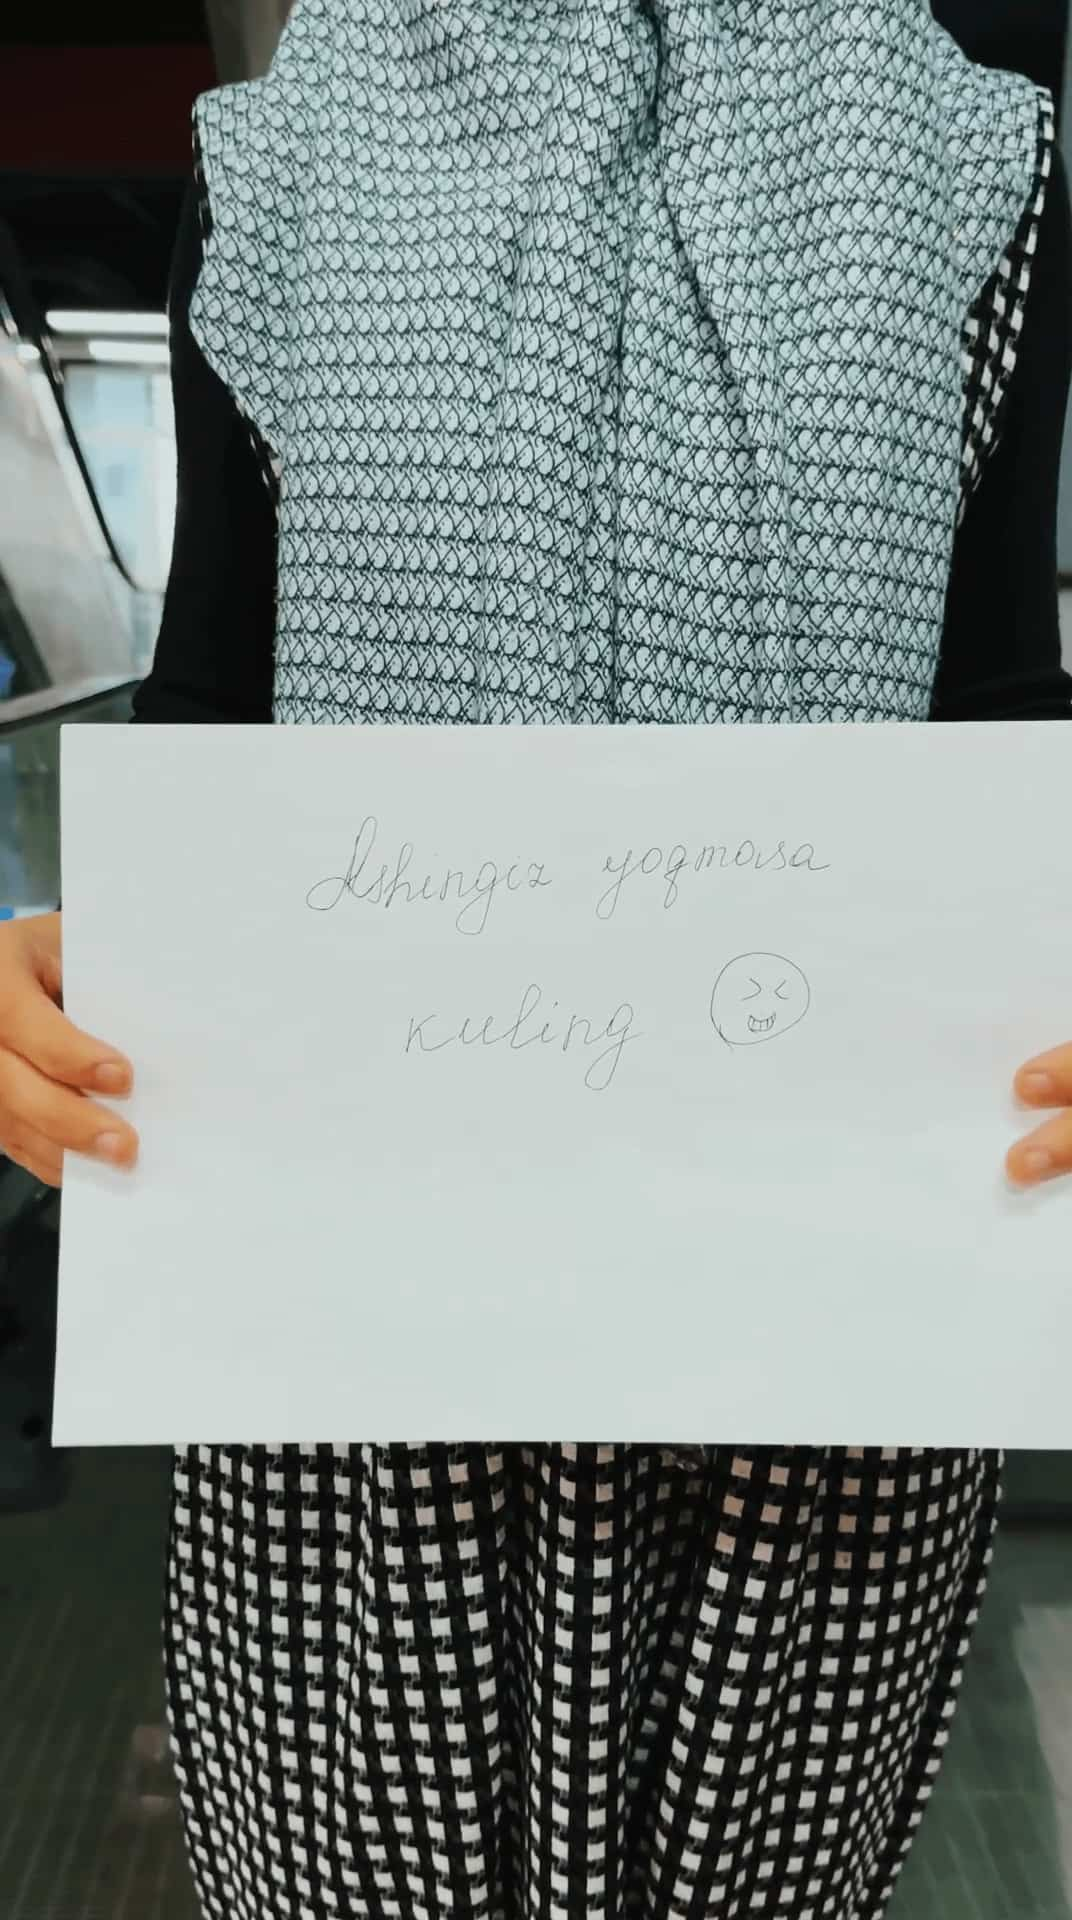 Ishingiz yoqmasa
kuling